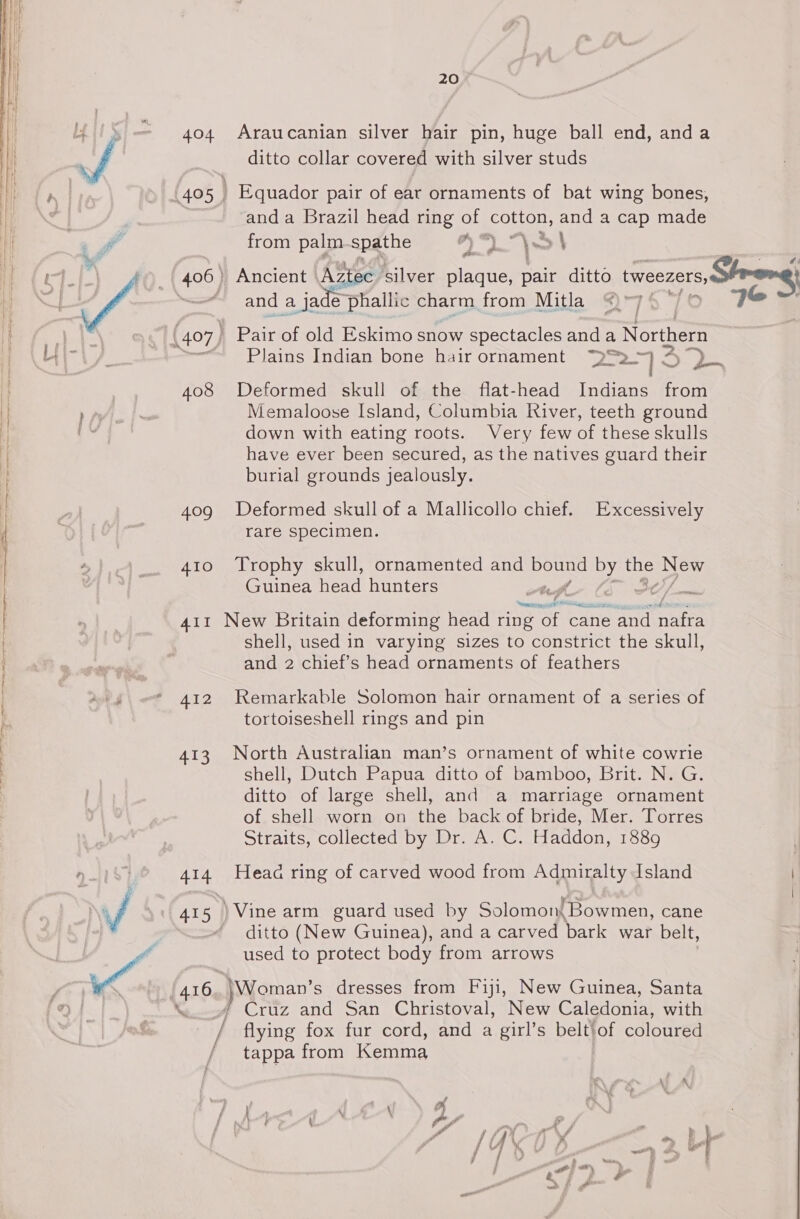 20
404 Araucanian silver hair pin, huge ball end, and a
ditto collar covered with silver studs
405 Equador pair of ear ornaments of bat wing bones,
and a Brazil head ring of cotton, and a cap made
from palm spathe
406 Ancient Aztec silver plaque, pair ditto tweezers,
and a jade phallic charm from Mitla
407 Pair of old Eskimo snow spectacles and a Northern
Plains Indian bone hair ornament
408 Deformed skull of the flat-head Indians from
Memaloose Island, Columbia River, teeth ground
down with eating roots. Very few of these skulls
have ever been secured, as the natives guard their
burial grounds jealously.
409 Deformed skull of a Mallicollo chief. Excessively
rare specimen.
410 Trophy skull, ornamented and bound by the New
Guinea head hunters
411 New Britain deforming head ring of cane and nafra
shell, used in varying sizes to constrict the skull,
and 2 chief's head ornaments of feathers
412 Remarkable Solomon hair ornament of a series of
tortoiseshell rings and pin
413 North Australian man's ornament of white cowrie
shell, Dutch Papua ditto of bamboo, Brit. N. G.
ditto of large shell, and a marriage ornament
of shell worn on the back of bride, Mer. Torres
Straits, collected by Dr. A. C. Haddon, 1889
414 Head ring of carved wood from Admiralty Island
415 Vine arm guard used by Solomon Bowmen, cane
ditto (New Guinea), and a carved bark war belt,
used to protect body from arrows
416 Woman's dresses from Fiji, New Guinea, Santa
Cruz and San Christoval, New Caledonia, with
flying fox fur cord, and a girl's belt of coloured
tappa from Kemma